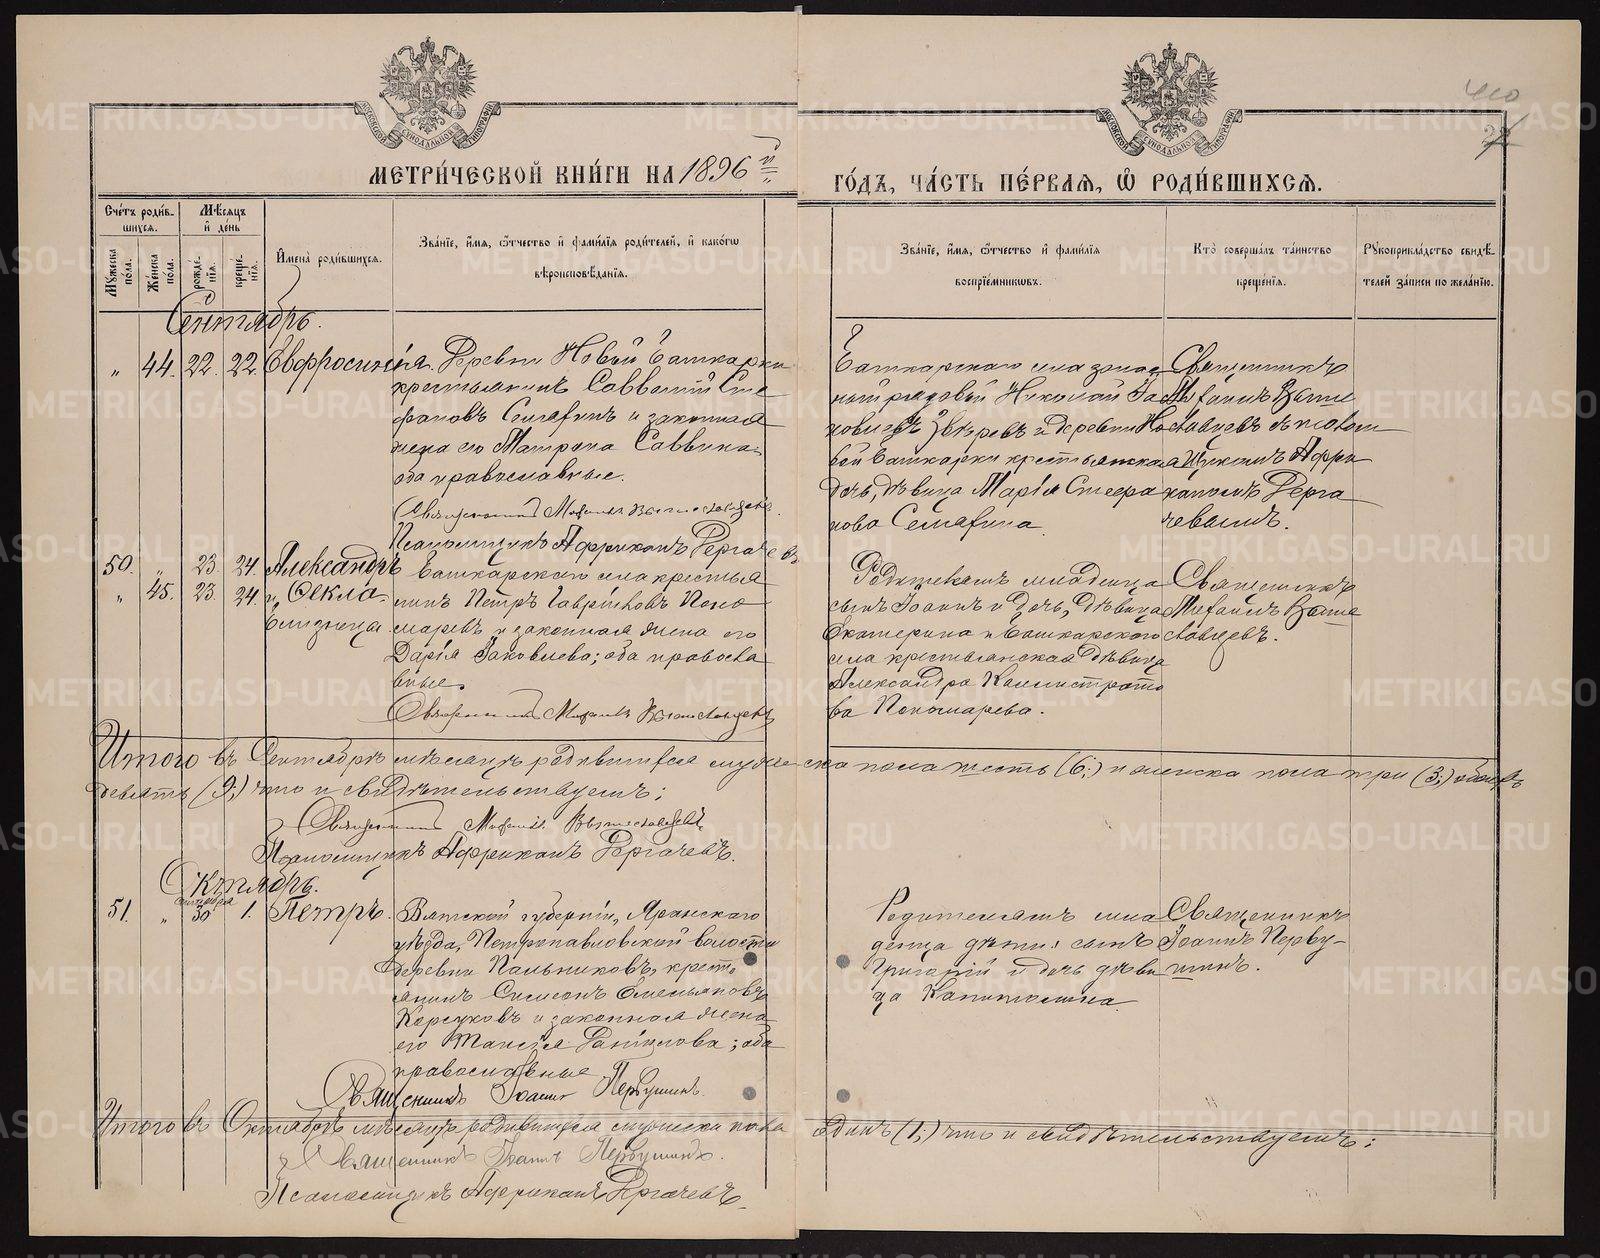 МОСКОВСКОЙ СУНОДАЛЬНОЙ ТИПОГРАФІИ
МОСКОВСКОЙ СУНОДАЛЬНОЙ ТИПОГРАФІИ
МЕТРИ́ЧЕСКОЙ КНИ́ГИ НА 1896 й
ГО́ДЪ, ЧА́СТЬ ПЕ́РВАѦ, Ѡ РОДИ́ВШИХСѦ.
Сче́тъ роди́вшихсѧ.
Мꙋжеска пола.
Же́нска пола.
Мѣ́сѧцъ и де́нь
рожде́нїѧ.
креще́нїѧ.
Имена̀ роди́вшихсѧ.
Зва́нїе, и́мѧ, ѻ́тчество и фами́лїѧ роди́телей, и како́гѡ
вѣроисповѣ́данїѧ.
Зва́нїе, и́мѧ, ѻ́тчество и фами́лїѧ
воспрїе́мникѡвъ.
Кто̀ соверша́лъ та́инство
креще́нїѧ.
Рꙋкоприкла́дство свидѣ́телей за́писи по жела́нїю.
Сентябрь.
„ 44. 22. 22. Евфросинія.
Деревни Новой Башкарки
крестьянинъ Савватій Сте
фановъ Серафинъ и законная
жена его Матрона Саввина,
оба православные.
Священникъ Михаилъ Вышеславцевъ.
Псаломщикъ Африканъ Дергачевъ
Башкарскаго села запас
ный рядовой Николай
Звѣревъ и деревни Но
вой Башкарки крестьянская
дочь, дѣвица Марія Стефа
нова Серафина.
Священникъ
Михаилъ Выше
славцевъ съ псалом
щикомъ Афри
каномъ Дерга
чевымъ.
50. „ 23. 24. Александръ
„ 45. 23. 24. и Ѳекла
близнецы.
Башкарскаго села крестья
нинъ Петръ Гавріиловъ Поно
маревъ и законная жена его
Дарія Іаковлева; оба правосла
вные.
Священникъ Михаилъ Вышеславцевъ
Родителямъ младенца
сынъ Іоаннъ и дочь, дѣвица
Екатерина и Башкарскаго
села крестьянская дѣвица
Александра Каллистрато
ва Пономарева.
Священникъ
Михаилъ Выше
славцевъ.
Итого въ Сентябрѣ мѣсяцѣ родившихся мужеска пола шесть (6;) и женска пола три (3;) обоего
девять (9;) что и свидѣтельствуемъ:
Священникъ Михаилъ Вышеславцевъ
Псаломщикъ Африканъ Дергачевъ.
Октябрь.
51. „ Сентября 30 1. Петръ.
Вятской губерніи, Яранскаго
уѣзда, Петропавловской волости
деревни Пальниковъ, кресть
янинъ Симеонъ Емельяновъ
и законная жена
его Таисія Данилова; оба
православные
Священникъ Іоаннъ Первушинъ.
Родителямъ мла
денца дѣти: сынъ
Григорій и дочь дѣви
ца Капитолина.
Священникъ
Іоаннъ Перву-
шинъ.
Итого въ Октябрѣ мѣсяцѣ родившихся мужеска пола одинъ (1;) что и свидѣтельствуемъ:
Священникъ Іоаннъ Первушинъ.
Псаломщикъ Африканъ Дергачевъ.
METRIKI.GASO-URAL.RU